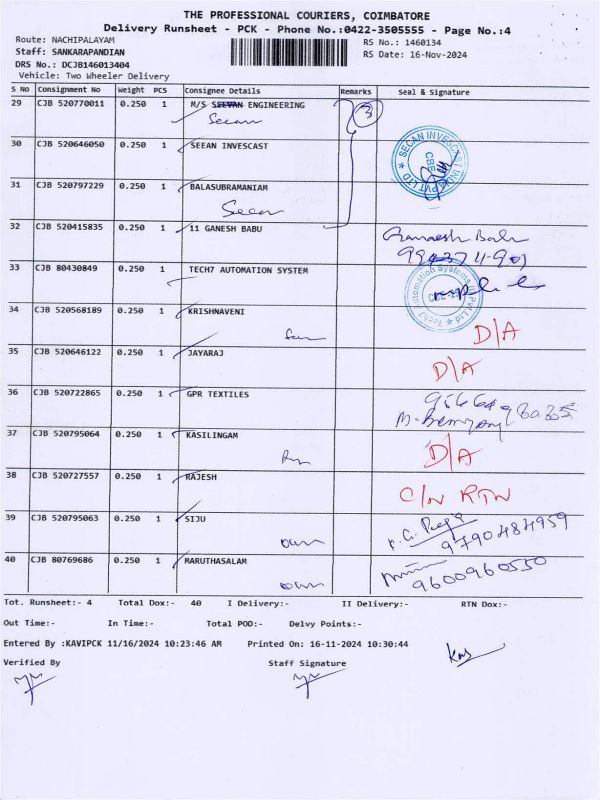 THE PROFESSIONAL COURIERS, COIMBATORE
Delivery Runsheet - PCK - Phone No.:0422-3505555 - Page No.:4
Route: NACHIPALAYAM
RS No.: 1460134
Staff: SANKARAPANDIAN
RS Date: 16-Nov-2024
DRS No.: DCJB146013404
Vehicle: Two Wheeler Delivery
S No Consignment No Weight PCS Consignee Details Remarks Seal & Signature
29 CJB 520770011 0.250 1 M/S SEEVAN ENGINEERING 3
Seean
30 CJB 520646050 0.250 1 SEEAN INVESCAST
SECAN INVESCAST INDIA PVT LTD
CBE
31 CJB 520797229 0.250 1 BALASUBRAMANIAM
Seean
32 CJB 520415835 0.250 1 11 GANESH BABU
33 CJB 80430849 0.250 1 TECH7 AUTOMATION SYSTEM
Tech7 Automation Systems Pvt Ltd
34 CJB 520568189 0.250 1 KRISHNAVENI
D/A
35 CJB 520646122 0.250 1 JAYARAJ
D/A
36 CJB 520722865 0.250 1 GPR TEXTILES
37 CJB 520795064 0.250 1 KASILINGAM
D/A
38 CJB 520727557 0.250 1 RAJESH
C/N RTN
39 CJB 520795063 0.250 1 SIJU
own
9790484959
40 CJB 80769686 0.250 1 MARUTHASALAM
own
9600960550
Tot. Runsheet:- 4 Total Dox:- 40 I Delivery:- II Delivery:- RTN Dox:-
Out Time:- In Time:- Total POD:- Delvy Points:-
Entered By :KAVIPCK 11/16/2024 10:23:46 AM Printed On: 16-11-2024 10:30:44
Verified By Staff Signature